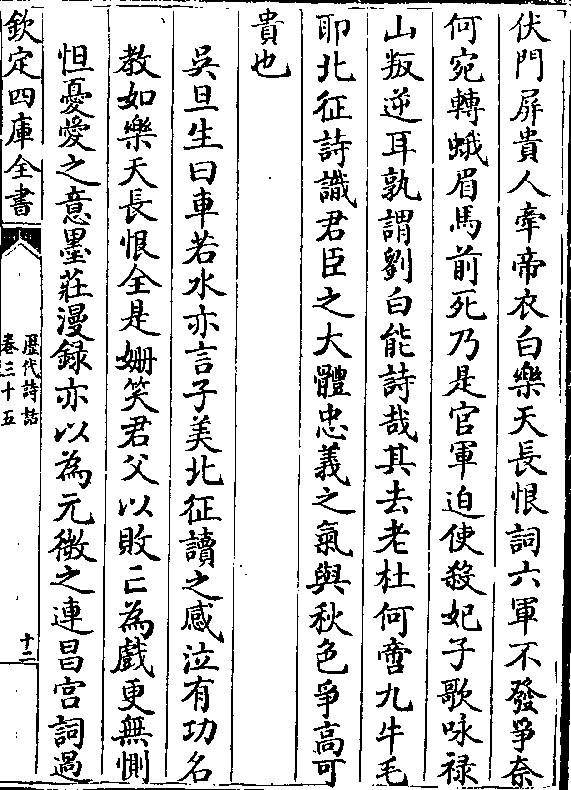 伏門屏貴人牽帝衣白樂天長恨詞六軍不發爭奈
何宛轉蛾眉馬前死乃是官軍迫使殺妃子歌咏祿
山叛逆耳孰謂劉白能詩哉其去老杜何啻九牛毛
耶北征詩識君臣之大體忠義之氣與秋色爭高可
貴也
吳旦生曰車若水亦言子美北征讀之感泣有功名
教如樂天長恨全是姍笑君父以敗亡為戲更無惻
怛憂愛之意墨莊漫録亦以為元微之連昌宫詞過
欽定四庫全書
歷代詩話
卷三十五
十二